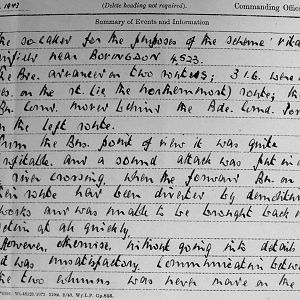 1943
(Delete heading not required).
Commanding Officer
Summary of Events and Information
the so-called for the purposes of the scheme "vital
airfield near BOVINGDON 4523.
The Bde. advanced on two routes; 3 I.G. were
on the rt. (ie the northernmost) route; the
Bn. Comd. moved behind the Bde. Comd.
on the left route.
From the Bns. point of view it was quite
profitable. And a sound attack was put in
river crossing, when the forward Bn. on
their route had been diverted by demolition
works and was unable to be brought back
action at all quickly.
However, otherwise, without going into details
it was unsatisfactory. Communication between
the two columns was never made on the